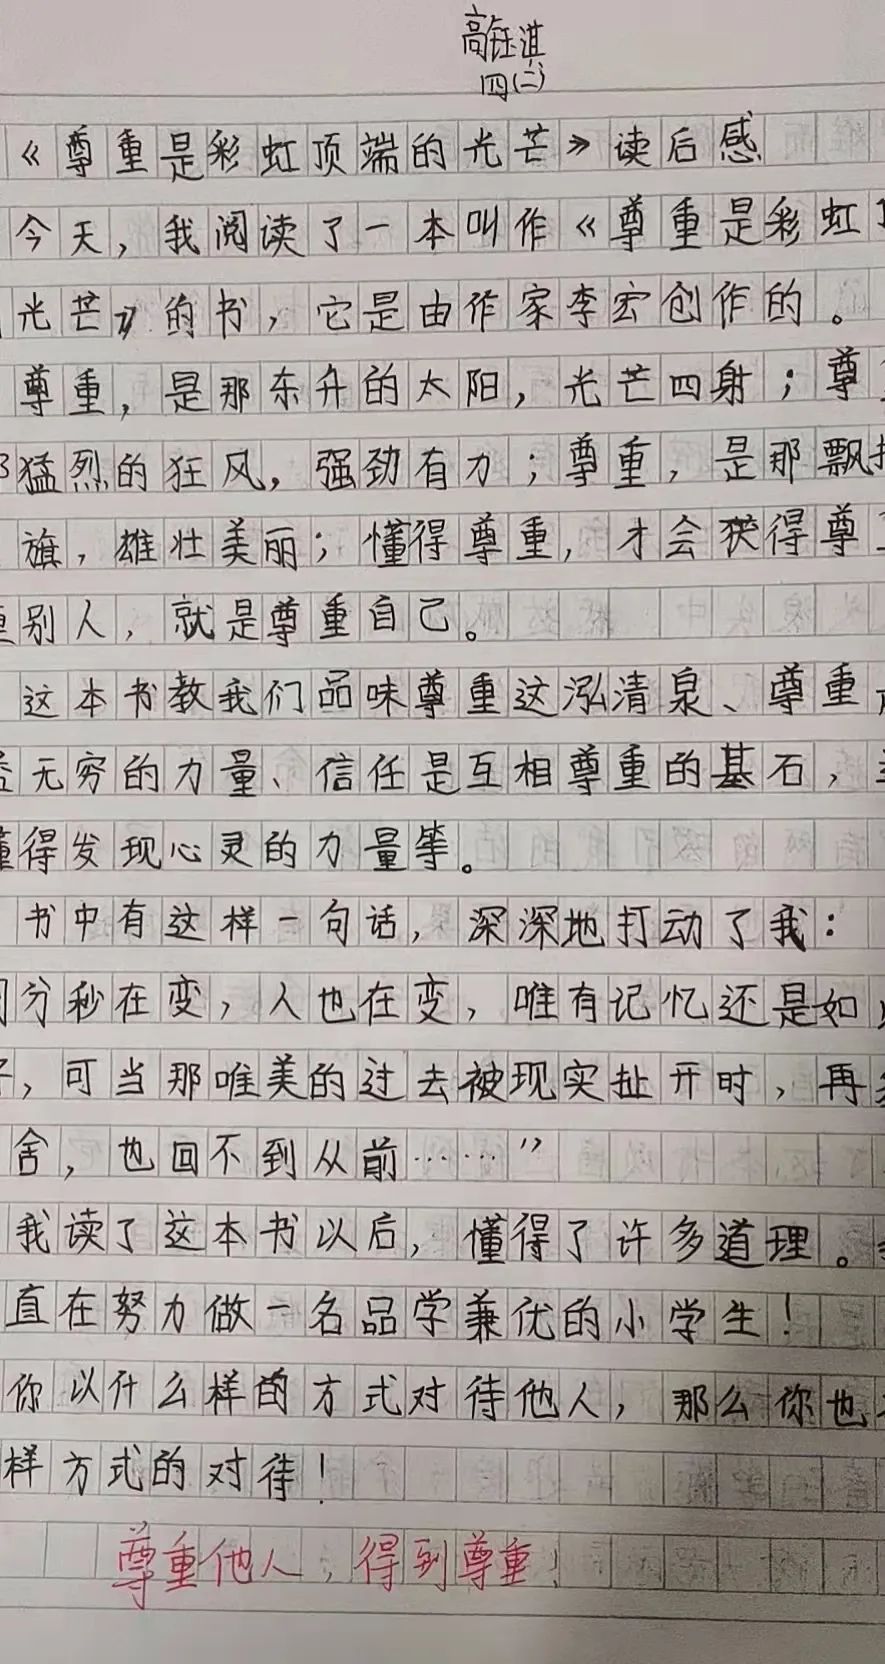 高钰淇
四(二)
《尊重是彩虹顶端的光芒》读后感
今天，我阅读了一本叫作《尊重是彩虹
光芒》的书，它是由作家李宏创作的。
尊重，是那东升的太阳，光芒四射；尊
猛烈的狂风，强劲有力；尊重，是那飘
旗，雄壮美丽；懂得尊重，才会获得尊
别人，就是尊重自己。
这本书教我们品味尊重这泓清泉、尊重
无穷的力量、信任是互相尊重的基石，
得发现心灵的力量等。
书中有这样一句话，深深地打动了我：
分秒在变，人也在变，唯有记忆还是如
，可当那唯美的过去被现实扯开时，再
舍，也回不到从前……”
我读了这本书以后，懂得了许多道理。
直在努力做一名品学兼优的小学生！
你以什么样的方式对待他人，那么你也
样方式的对待！
尊重他人，得到尊重！